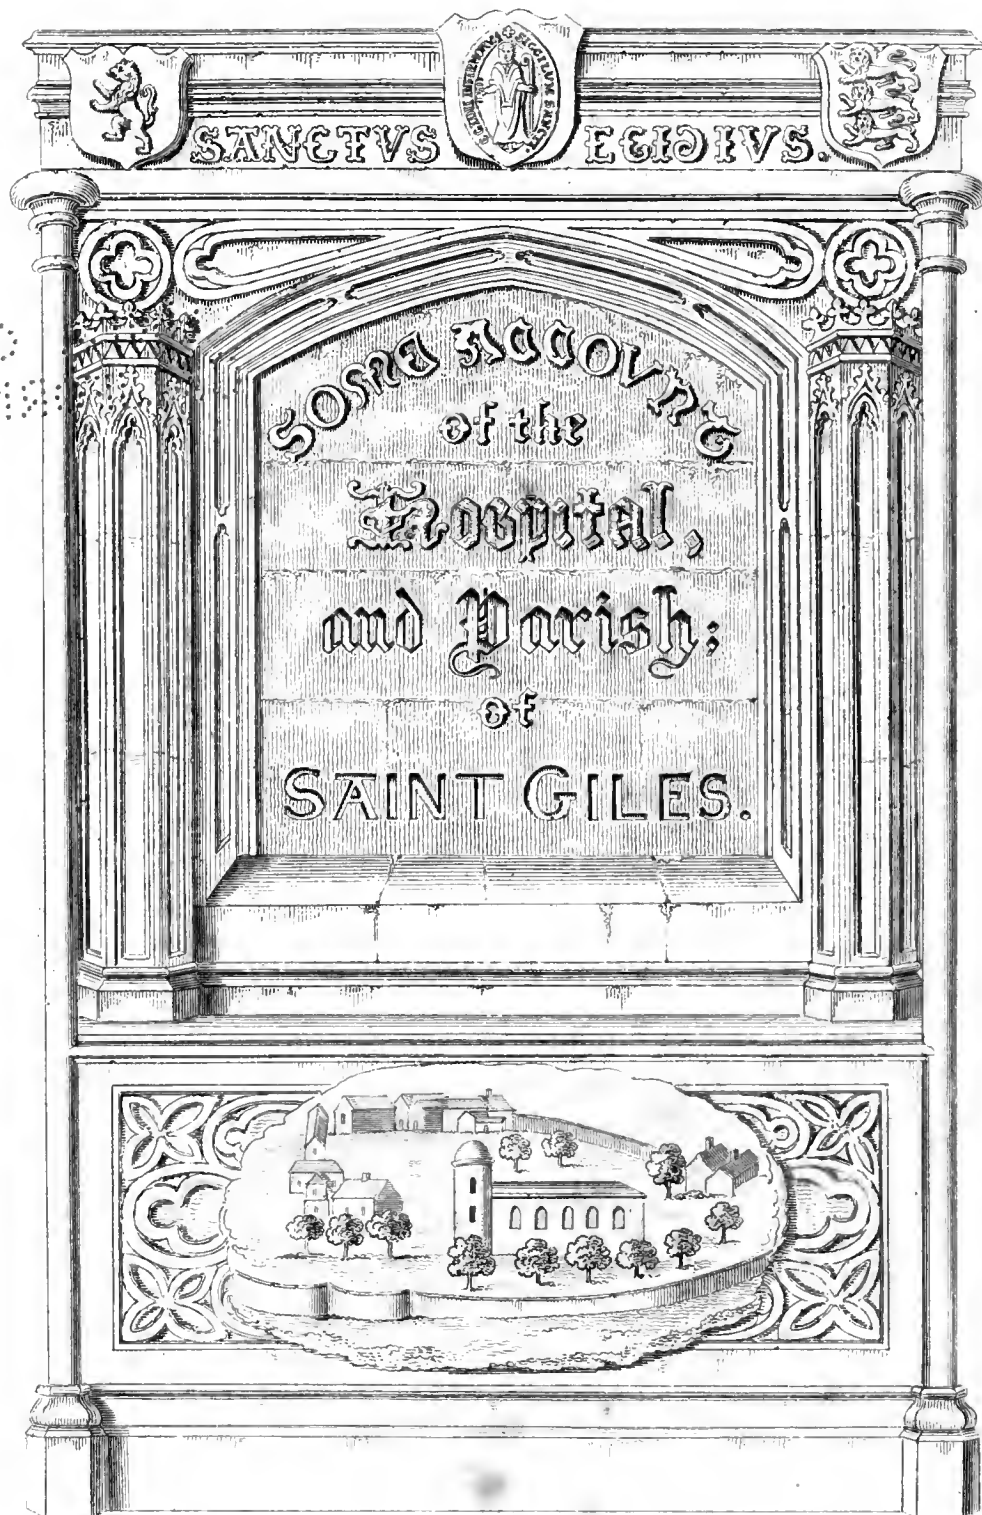 SANCTVS EGIDIVS.
SOME ACCOVNT
of the
Hospital,
and Parish;
of
SAINT GILES.